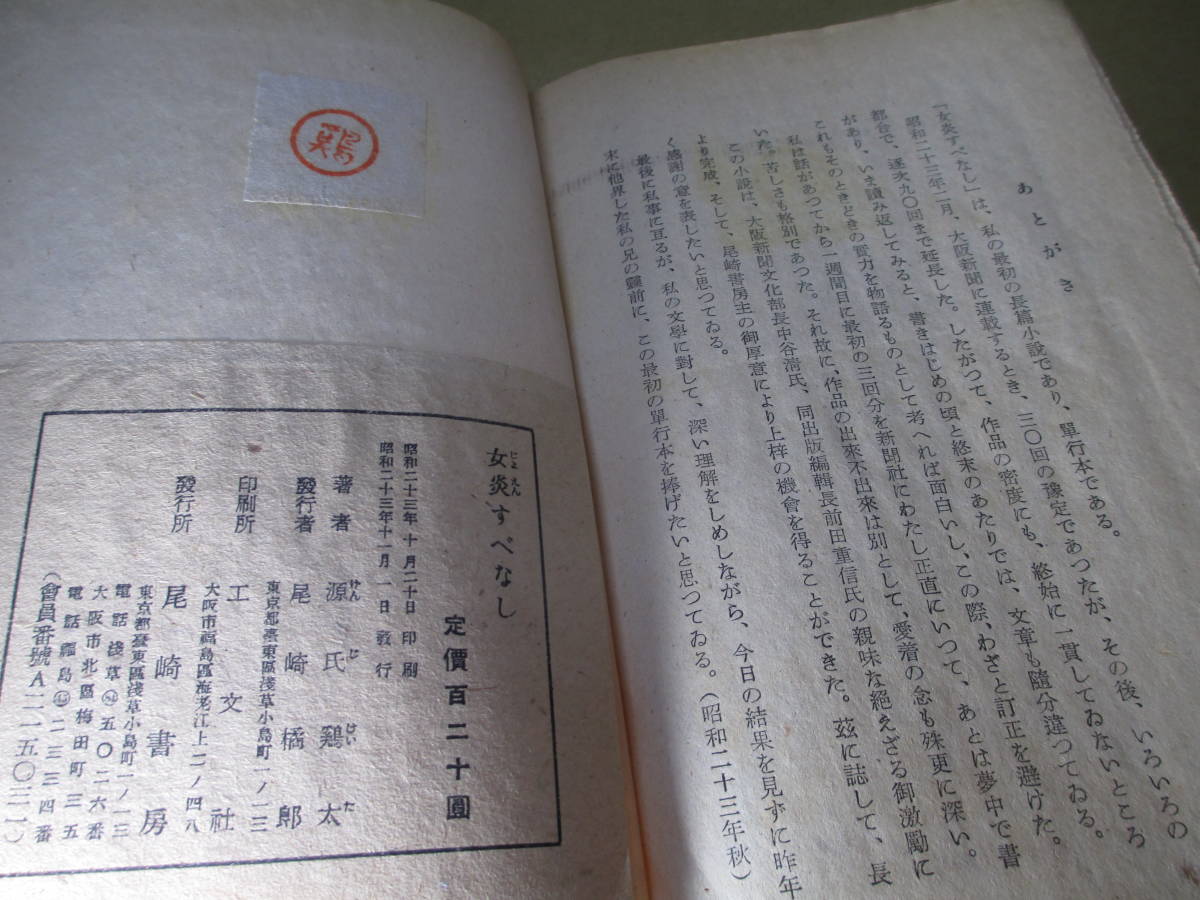 あとがき
「女炎すべなし」は、私の最初の長篇小説であり、單行本である。
昭和二十三年二月、大阪新聞に連載するとき、三〇回の豫定であつたが、その後、いろいろの
都合で、逐次九〇回まで延長した。したがつて、作品の密度にも、終始に一貫してゐないところ
があり、いま讀み返してみると、書きはじめの頃と終末のあたりでは、文章も隨分違つてゐる。
これもそのときどきの實力を物語るものとして考へれば面白いし、この際、わざと訂正を避けた。
私は話があつてから一週間目に最初の三回分を新聞社にわたし正直にいつて、あとは夢中で書
いた。苦しさも格別であつた。それ故に、作品の出來不出來は別として、愛着の念も殊更に深い。
この小說は、大阪新聞文化部長中谷淸氏、同出版編輯長前田重信氏の親味な絕えざる御激勵に
より完成、そして、尾崎書房主の御厚意により上梓の機會を得ることができた。茲に誌して、長
く感謝の意を表したいと思つてゐる。
最後に私事に亙るが、私の文學に對して、深い理解をしめしながら、今日の結果を見ずに昨年
末に他界した私の兄の靈前に、この最初の單行本を捧げたいと思つてゐる。（昭和二十三年秋）
鷄
女炎すべなし
じよえん
定價百二十圓
昭和二十三年十月二十日印刷
昭和二十三年十一月一日發行
著者 源氏鷄太
げんじけいた
發行者 尾崎橘郞
東京都臺東區淺草小島町一ノ一三
印刷所 工文社
大阪市福島區海老江上二ノ四八
發行所 尾崎書房
東京都臺東區淺草小島町一ノ一三
電話淺草(84)五〇二六番
大阪市北區梅田町三五
電話福島(45)二三三四番
(會員番號A二一五〇二一)